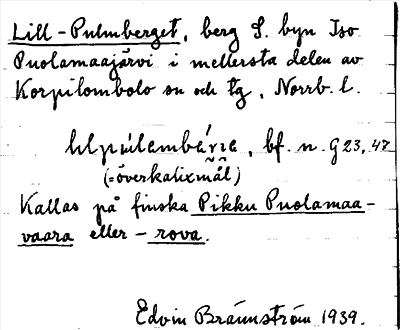 Lill-Pulmberget, berg S. byn Iso
Puolamaajärvi i mellersta delen av
Korpilombolo sn och tg, Norrb. l.
lılpúlembä́rıe, bf. n. G 23, 47
(=överkalixmål)
Kallas på finska Pikku Puolamaa-
vaara eller -rova.
Edvin Brännström 1939.